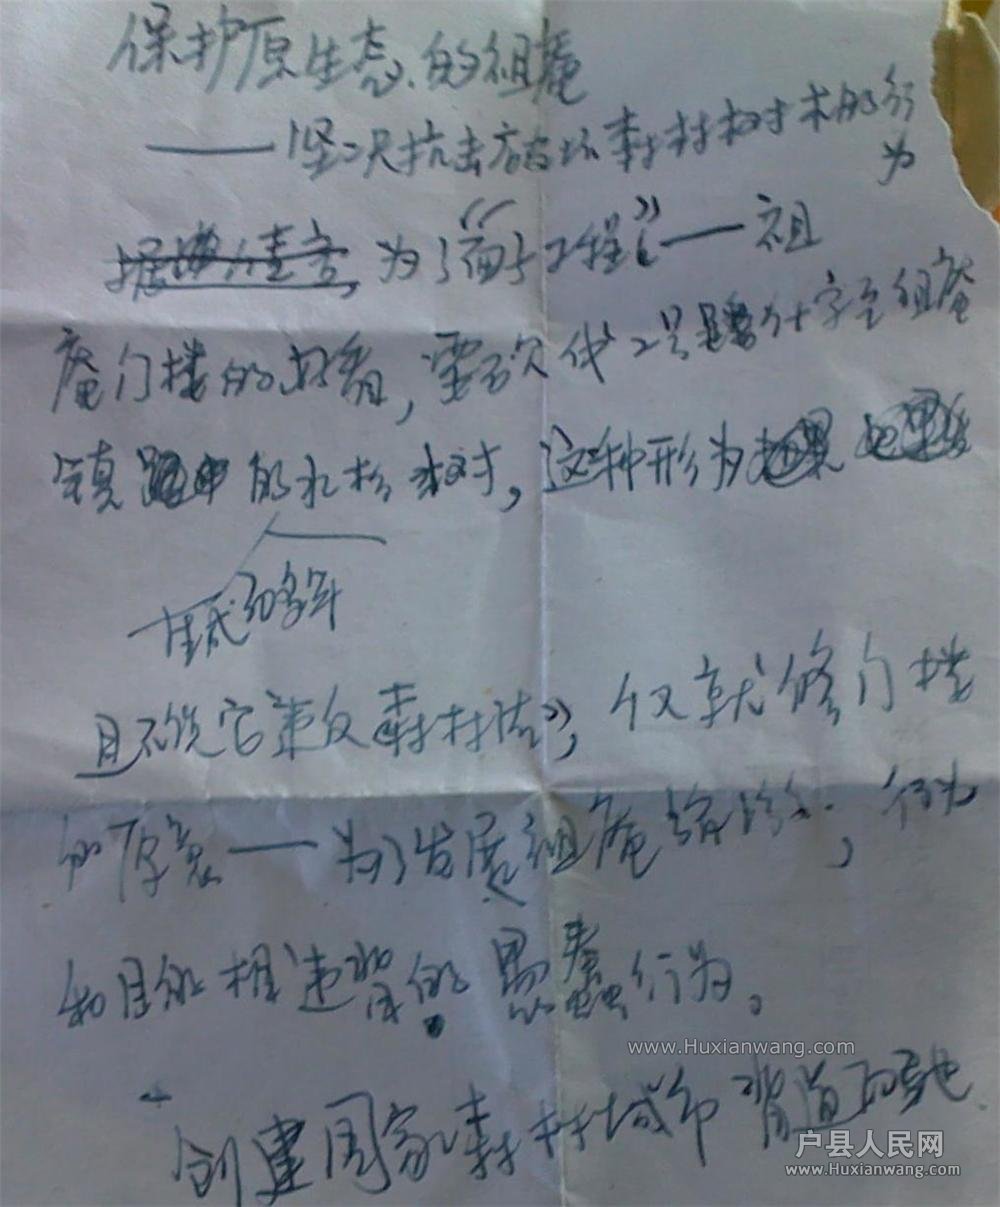 保护原生态的祖庵
——坚决抗击破坏森林树木的行
为
为了“面子工程”——祖
庵门楼的好看,要砍伐2号路什字至祖庵
镇的水杉树,这种形为
植成30多年
且不说它违反森林法》,仅就修门楼
的原意——为了发展祖庵镇的,行为
和目的相违背的愚蠢行为。
创建国家森林城市背道而驰
www.Huxianwang.com
户县人民网
www.Huxianwang.com